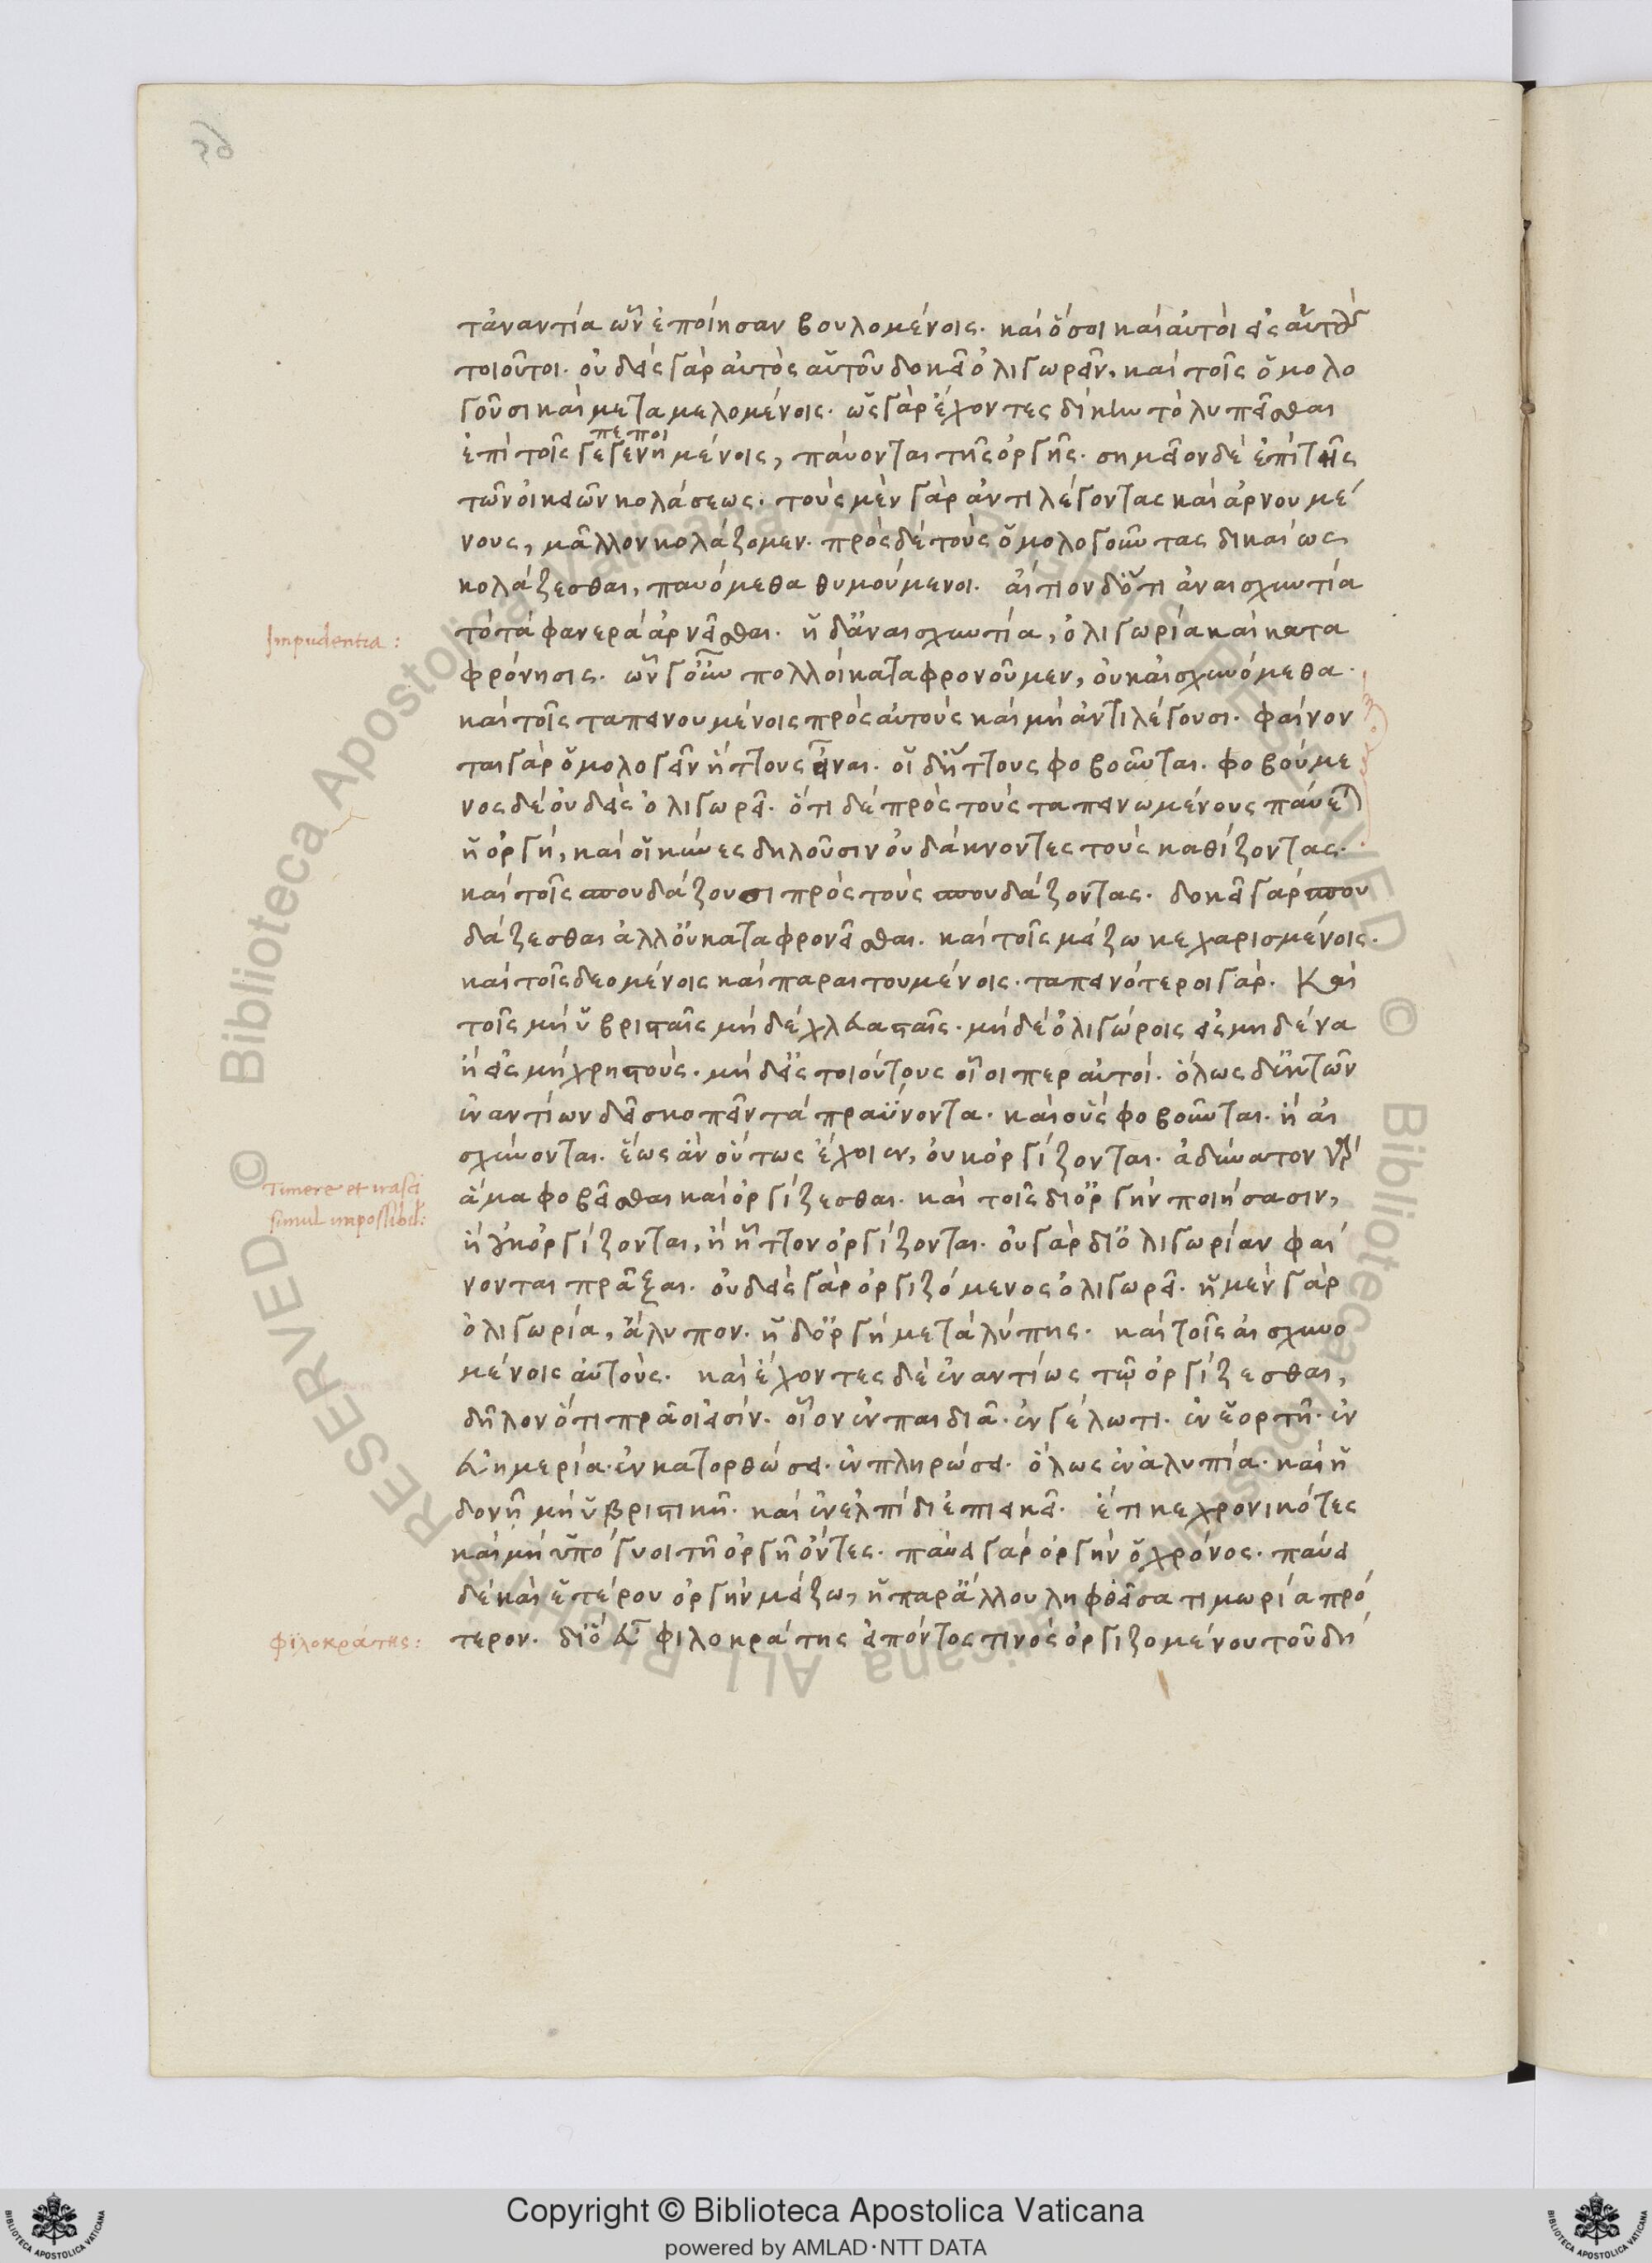 τἀναντία ὧν ἐποίησαν βουλομένοις. καὶ ὅσοι καὶ αὐτοὶ εἰς αὑτοὺς
τοιοῦτοι. οὐδεὶς γὰρ αὐτὸς αὑτοῦ δοκεῖ ὀλιγωρεῖν. καὶ τοῖς ὁμολο
γοῦσι καὶ μεταμελομένοις. ὡς γὰρ ἔχοντες δίκην τὸ λυπεῖσθαι
πεποι
ἐπὶ τοῖς γεγενημένοις, παύονται τῆς ὀργῆς. σημεῖον δὲ ἐπὶ τῆς
τῶν οἰκείων κολάσεως. τοὺς μὲν γὰρ ἀντιλέγοντας καὶ ἀρνουμέ
νους, μᾶλλον κολάζομεν. πρὸς δὲ τοὺς ὁμολογοῦντας δικαίως
κολάζεσθαι, παυόμεθα θυμούμενοι. αἴτιον δ' ὅτι ἀναισχυντία
Impudentia:
τὸ τὰ φανερὰ ἀρνεῖσθαι. ἡ δ' ἀναισχυντία, ὀλιγωρία καὶ κατα
φρόνησις. ὧν γοῦν πολλοὶ καταφρονοῦμεν, οὐκ αἰσχυνόμεθα.
καὶ τοῖς ταπεινουμένοις πρὸς αὐτοὺς καὶ μὴ ἀντιλέγουσι. φαίνον
ται γὰρ ὁμολογεῖν ἥττους εἶναι. οἱ δ' ἥττους φοβοῦνται. φοβούμε
νος δὲ οὐδεὶς ὀλιγωρεῖ. ὅτι δὲ πρὸς τοὺς ταπεινωμένους παύε
ἡ ὀργή, καὶ οἱ κύνες δηλοῦσιν οὐ δάκνοντες τοὺς καθίζοντας.
καὶ τοῖς σπουδάζουσι πρὸς τοὺς σπουδάζοντας. δοκεῖ γὰρ σπου
δάζεσθαι ἀλλ' οὐ καταφρονεῖσθαι. καὶ τοῖς μείζω κεχαρισμένοις.
καὶ τοῖς δεομένοις καὶ παραιτουμένοις. ταπεινότεροι γάρ. Καὶ
τοῖς μὴ ὑβρισταῖς μὴ δὲ χλευασταῖς. μὴ δὲ ὀλιγώροις εἰς μηδένα
ἢ εἰς μὴ χρηστούς. μὴ δ' εἰς τοιούτους οἷοι περ αὐτοί. ὅλως δ' ἐκ τῶν
ἐναντίων δεῖ σκοπεῖν τὰ πραΰνοντα. καὶ οὓς φοβοῦνται. ἢ αἰ
σχύνονται. ἕως ἂν οὕτως ἔχοιεν, οὐκ ὀργίζονται. ἀδύνατον γὰρ
Timere et irasci
simul impossibil:
ἅμα φοβεῖσθαι καὶ ὀργίζεσθαι. καὶ τοῖς δι' ὀργὴν ποιήσασιν,
ἢ οὐκ ὀργίζονται, ἢ ἧττον ὀργίζονται. οὐ γὰρ δι' ὀλιγωρίαν φαί
νονται πρᾶξαι. οὐδεὶς γὰρ ὀργιζόμενος ὀλιγωρεῖ. ἡ μὲν γὰρ
ὀλιγωρία, ἄλυπον. ἡ δ' ὀργὴ μετὰ λύπης. καὶ τοῖς αἰσχυνο
μένοις αὐτούς. καὶ ἔχοντες δὲ ἐναντίως τῷ ὀργίζεσθαι,
δῆλον ὅτι πρᾶοι εἰσίν. οἷον ἐν παιδιᾷ. ἐν γέλωτι. ἐν ἑορτῇ. ἐν
εὐημερίᾳ. ἐν κατορθώσει. ἐν πληρώσει. ὅλως ἐν ἀλυπίᾳ. καὶ ἡ
δονῇ μὴ ὑβριστικῇ. καὶ ἐν ἐλπίδι ἐπιεικεῖ. ἔτι κεχρονικότες
καὶ μὴ ὑπόγυοι τῇ ὀργῇ ὄντες. παύει γὰρ ὀργὴν ὁ χρόνος. παύει
δὲ καὶ ἑτέρου ὀργὴν μείζω, ἡ παρ' ἄλλου ληφθεῖσα τιμωρία πρό
φϊλοκράτης:
τερον. διὸ εὖ φιλοκράτης εἰπόντος τινὸς ὀργιζομένου τοῦ δή
© Biblioteca Apostolica Vaticana ALL RIGHTS RESERVED
Copyright © Biblioteca Apostolica Vaticana
powered by AMLAD·NTT DATA
BIBLIOTECA APOSTOLICA VATICANA
BIBLIOTECA APOSTOLICA VATICANA